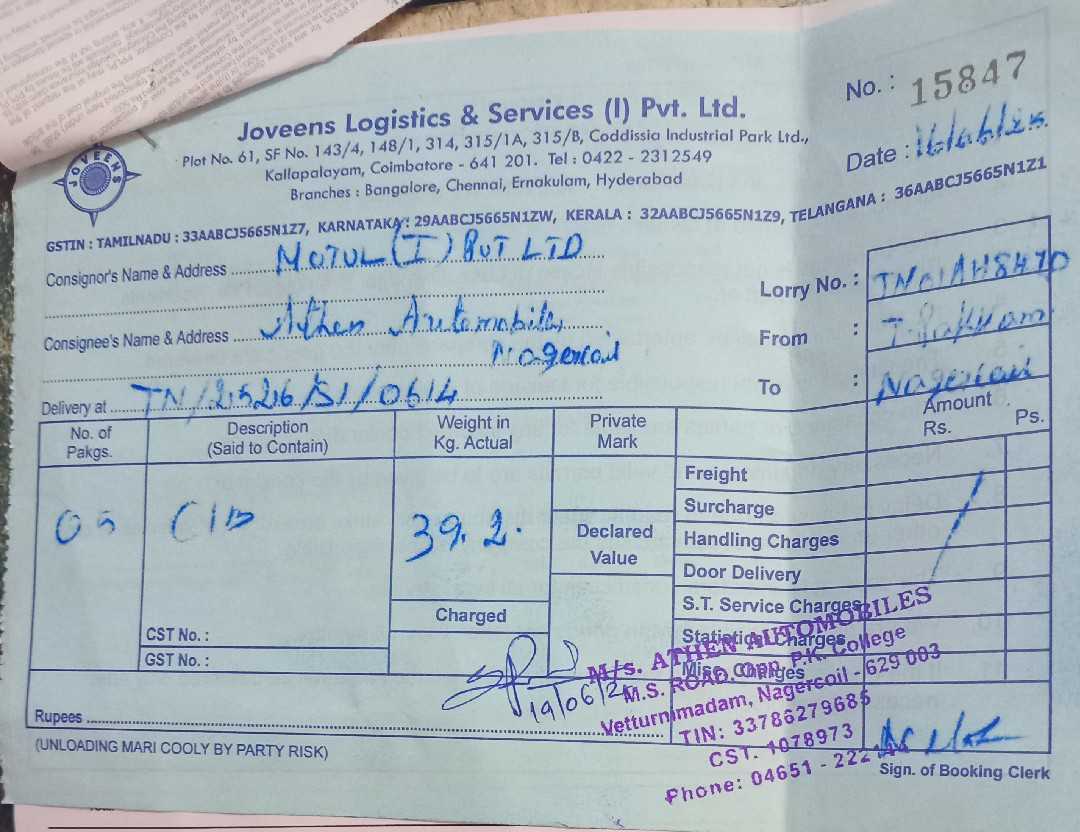 No. : 15847
Joveens Logistics & Services (I) Pvt. Ltd.
Plot No. 61, SF No. 143/4, 148/1, 314, 315/1A, 315/B, Coddissia Industrial Park Ltd.,
Kallapalayam, Coimbatore - 641 201. Tel : 0422 - 2312549
Branches : Bangalore, Chennai, Ernakulam, Hyderabad
Date : 16/06/25
JOVEENS
GSTIN : TAMILNADU : 33AABCJ5665N1Z7, KARNATAKA : 29AABCJ5665N1ZW, KERALA : 32AABCJ5665N1Z9, TELANGANA : 36AABCJ5665N1Z1
Consignor's Name & Address MOTUL (I) PVT LTD
Lorry No. : TN01AH8470
Consignee's Name & Address Athen Automobiles
Nagercoil
From :
Delivery at TN/2526/S1/0614
To : Nagercoil
No. of Pakgs.
Description (Said to Contain)
Weight in Kg. Actual
Private Mark
Amount
Rs. Ps.
05
39.2.
Declared Value
Charged
Freight
Surcharge
Handling Charges
Door Delivery
S.T. Service Charges
Statistical Charges
Misc. Charges
CST No. :
GST No. :
19/06/2
M/s. ATHEN AUTOMOBILES
M.S. ROAD, Opp. P.K. College
Vetturnimadam, Nagercoil - 629 003
TIN: 33786279685
CST. 1078973
Phone: 04651 - 222
Rupees
(UNLOADING MARI COOLY BY PARTY RISK)
Sign. of Booking Clerk